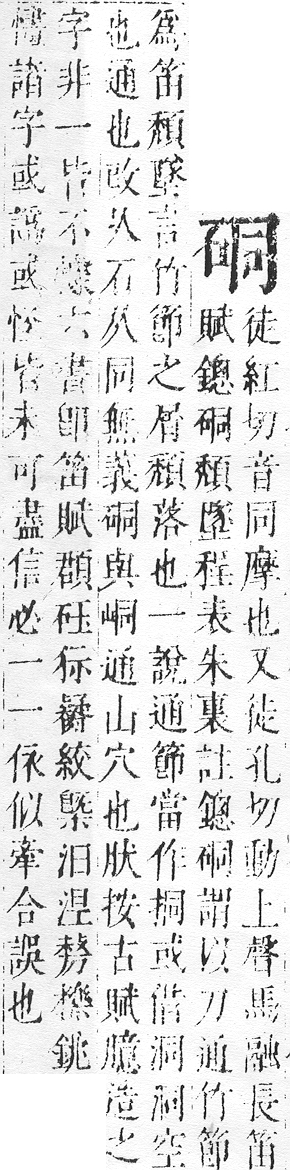 硐
徒紅切音同摩也又徒孔切動上聲馬融長笛
賦鏓硐頹墜程表朱裏註鏓硐謂以刀通竹節
為笛頹墜言竹節之屑頹落也一說通節當作挏或借洞洞空
也通也改从石从同無義硐與峒通山穴也肰按古賦臆造之
字非一皆不六書卽笛賦頵砡狋觺絞槩汩湟勞櫟銚
㦎諸字或譌或怪皆未可盡信必一一依似牽合誤也